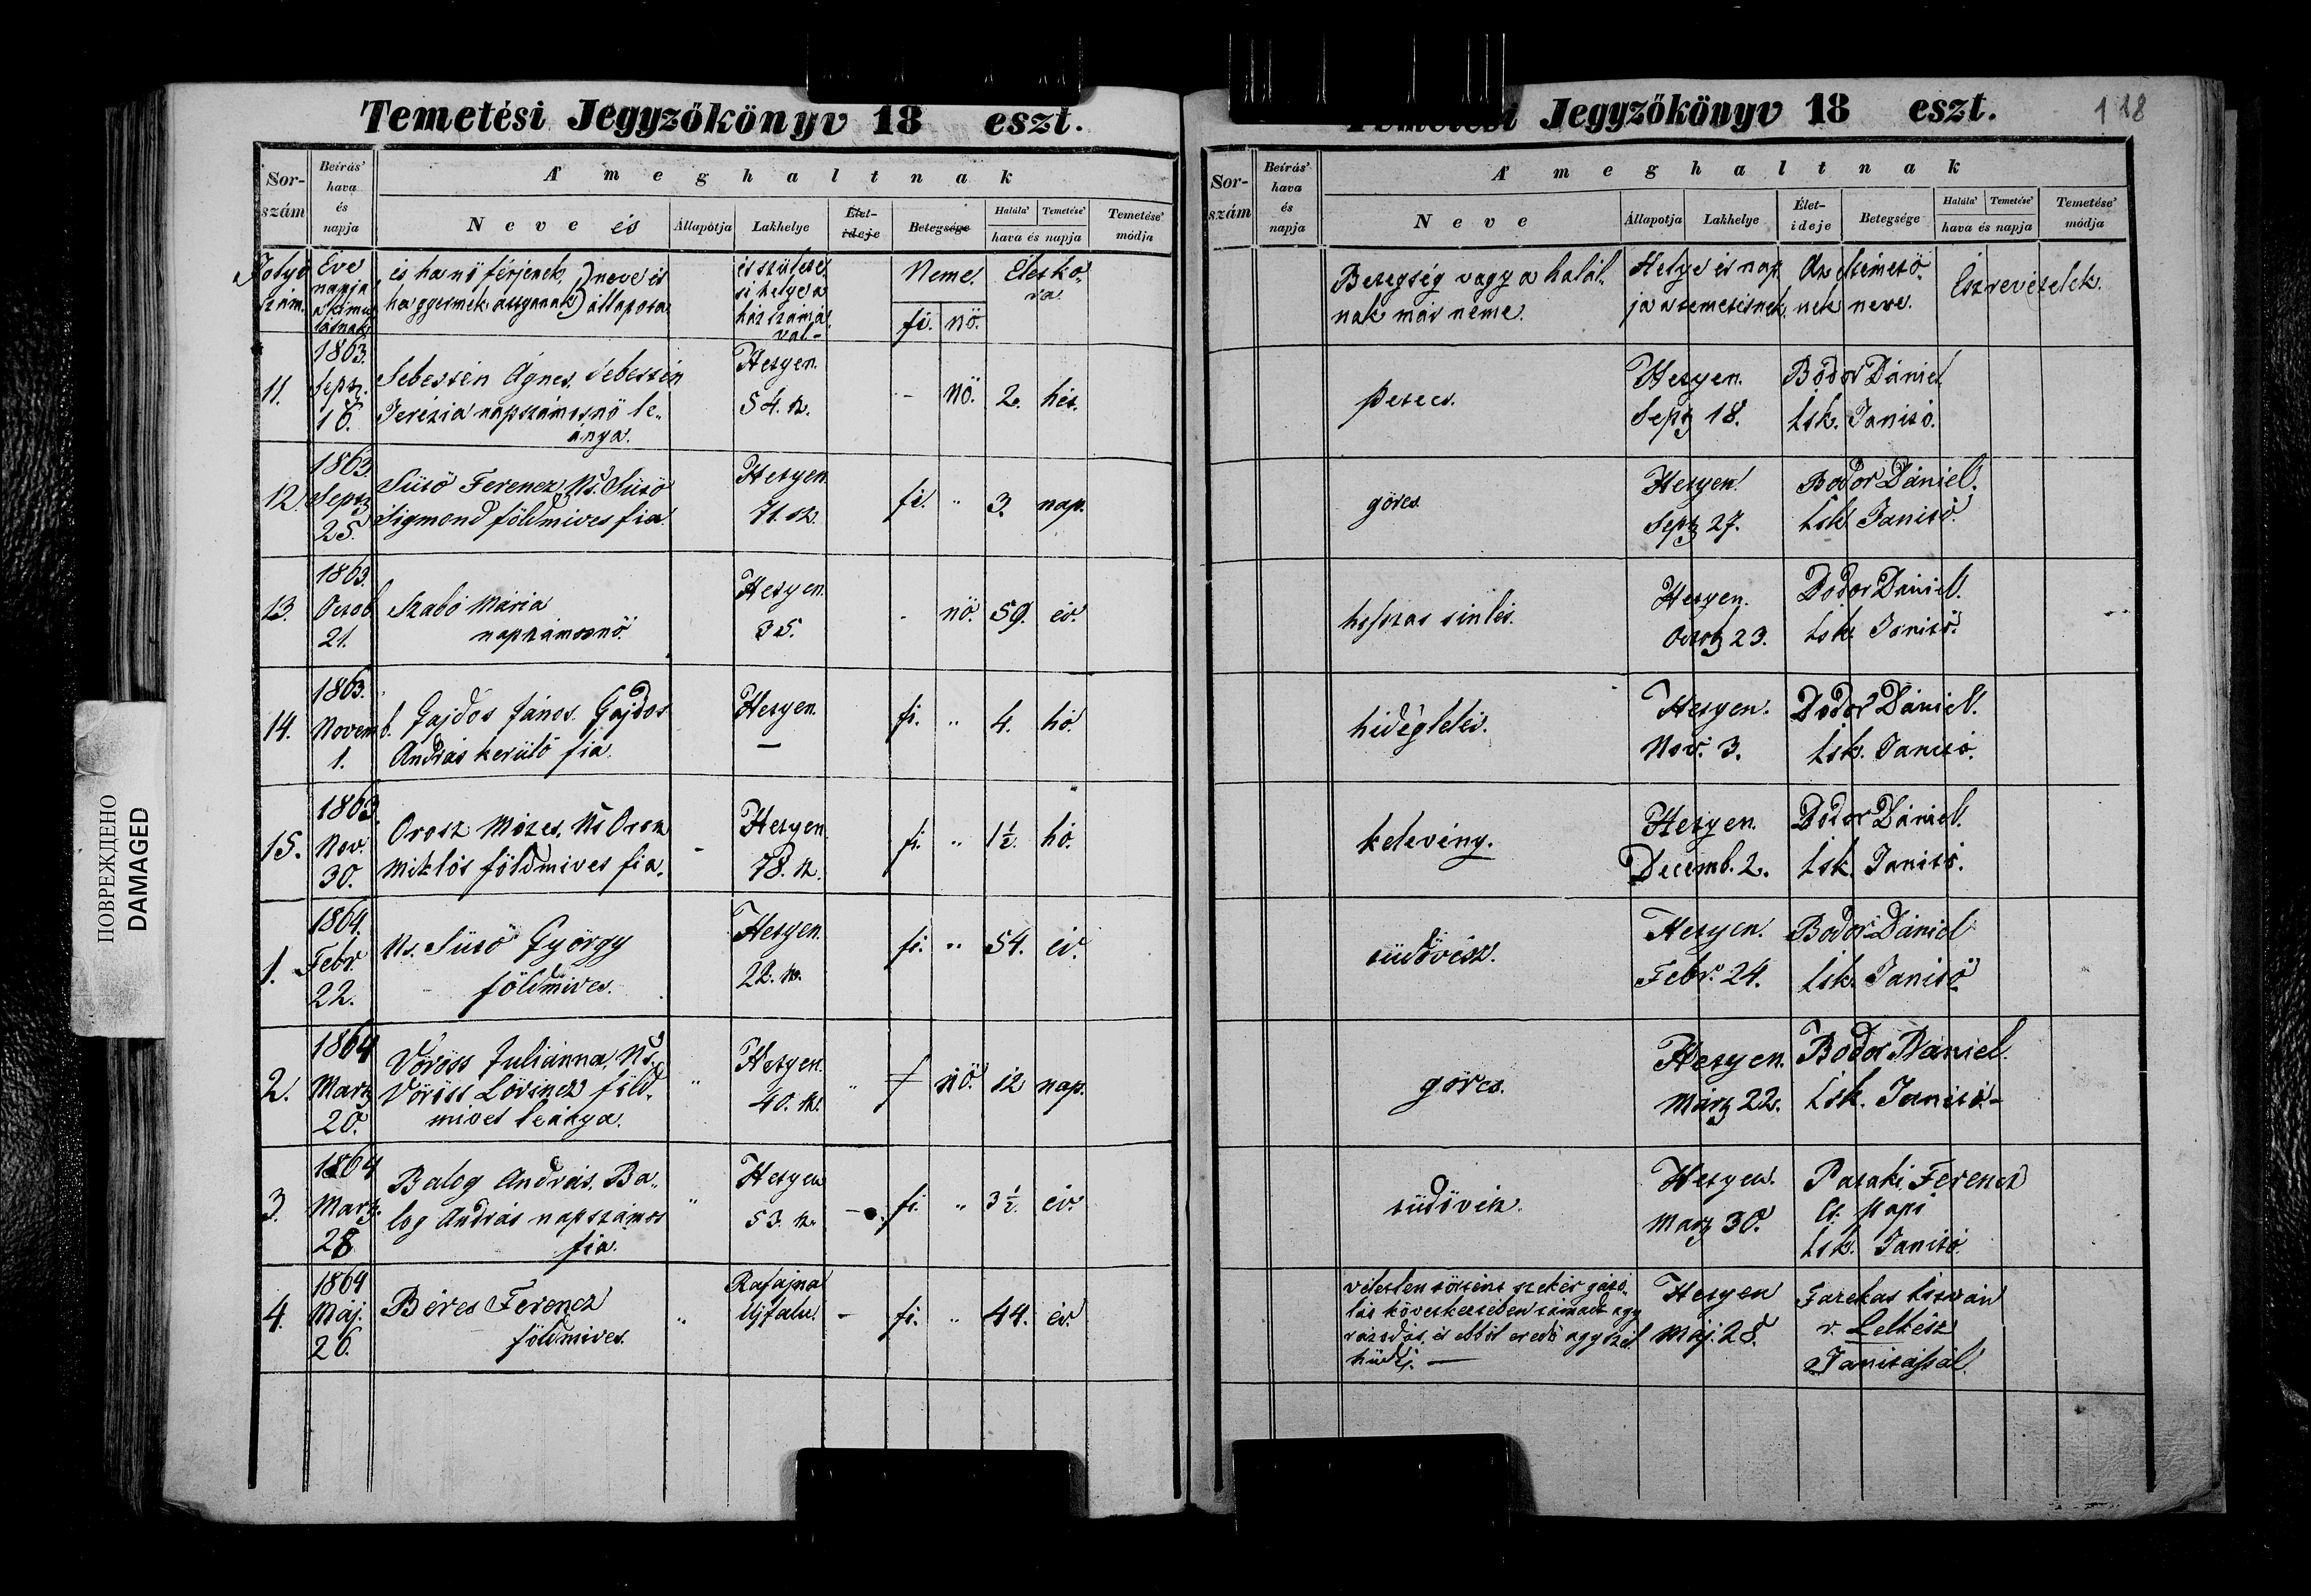 Temetési Jegyzőkönyv 18 eszt.
Sor-
szám
Beírás'
hava
és
napja
A' meghaltnak
Neve és
Állapotja
Lakhelye
Élet-
ideje
Betegsége
Halála'
Temetése'
hava és napja
Temetése'
módja
Folyó
szám.
Éve
napja
a kimu
lásnak
és ha nő férjének,
ha gyermek attyának
neve és
állapota
és születé
si helye a
ház számá
val.
Neme.
fi. nő.
Életko-
ra.
11.
1863.
Sept.
16.
Sebestén Ágnes. Sebestén
Terézia napszámosnő le-
ánya.
Hetyen.
54. sz.
- nő. 2. hét.
12.
1863
Sept
25.
Sütő Ferencz, Ns. Sütő
Sigmond földmives fia.
Hetyen
71. sz.
fi. " 3. nap.
13.
1863.
Octob
21.
Szabó Mária
napszámosnő.
Hetyen.
35.
- nő. 59. év.
14.
1863.
Novemb.
1.
Gajdos János. Gajdos
András kerülő fia.
Hetyen.
—
fi. " 4. hó.
15.
1863.
Nov.
30.
Orosz Mózes, Ns Orosz
Miklós földmives fia.
Hetyen.
78. sz.
fi. " 1½. hó.
1.
1864.
Febr.
22.
Ns. Sütő György
földmives.
Hetyen.
22. sz.
fi. " 54. év.
2.
1864
Mart
20.
Vörös Juliánna, Ns.
Vöröss Lőrincz föld-
mives leánya.
"
Hetyen.
40. sz.
" f nő. 12 nap.
3.
1864
Mart.
28
Balog András. Ba-
log András napszámos
fia.
"
Hetyen
53. sz.
- fi. " 3½. év.
4.
1864
Máj.
26.
Béres Ferencz
földmives.
"
Rafajna
Ujfalu.
- fi. " 44. év.
Temetési Jegyzőkönyv 18 eszt.
118
Sor-
szám
Beírás'
hava
és
napja
A' meghaltnak
Neve
Állapotja
Lakhelye
Élet-
ideje
Betegsége
Halála'
Temetése'
hava és napja
Temetése'
módja
Betegség vagy a halál-
nak más neme.
Helye és nap
ja a temetésnek.
Az eltemető-
nek neve.
Észrevételek.
Hetyen.
Sept 18.
Bodor Dániel
Isk. Tanító.
görcs.
Hetyen
Sept 27.
Bodor Dániel.
Isk. Tanító.
hosszas sinlés.
Hetyen.
Octob 23.
Bodor Dániel.
Isk. Tanító.
hideglelés.
Hetyen.
Nov. 3.
Bodor Dániel.
Isk. Tanító.
kelevény.
Hetyen.
Decemb. 2.
Bodor Dániel.
Isk. Tanító.
tüdővész.
Hetyen.
Febr. 24.
Bodor Dániel
Isk. Tanító
görcs.
Hetyen.
Mart 22.
Bodor Dániel.
Isk. Tanító.-
tüdővész.
Hetyen.
Mart 30.
Pataki Ferencz
Cs. papi
Isk. Tanító.
véletlen történt szekér gázo-
lás következtében támadt agy
rázódás, és ebből eredő agyszél
hüdés. —
Hetyen
Máj. 28.
Farekas István
r. Lelkész
Tanítóssal.
ПОВРЕЖДЕНО
DAMAGED